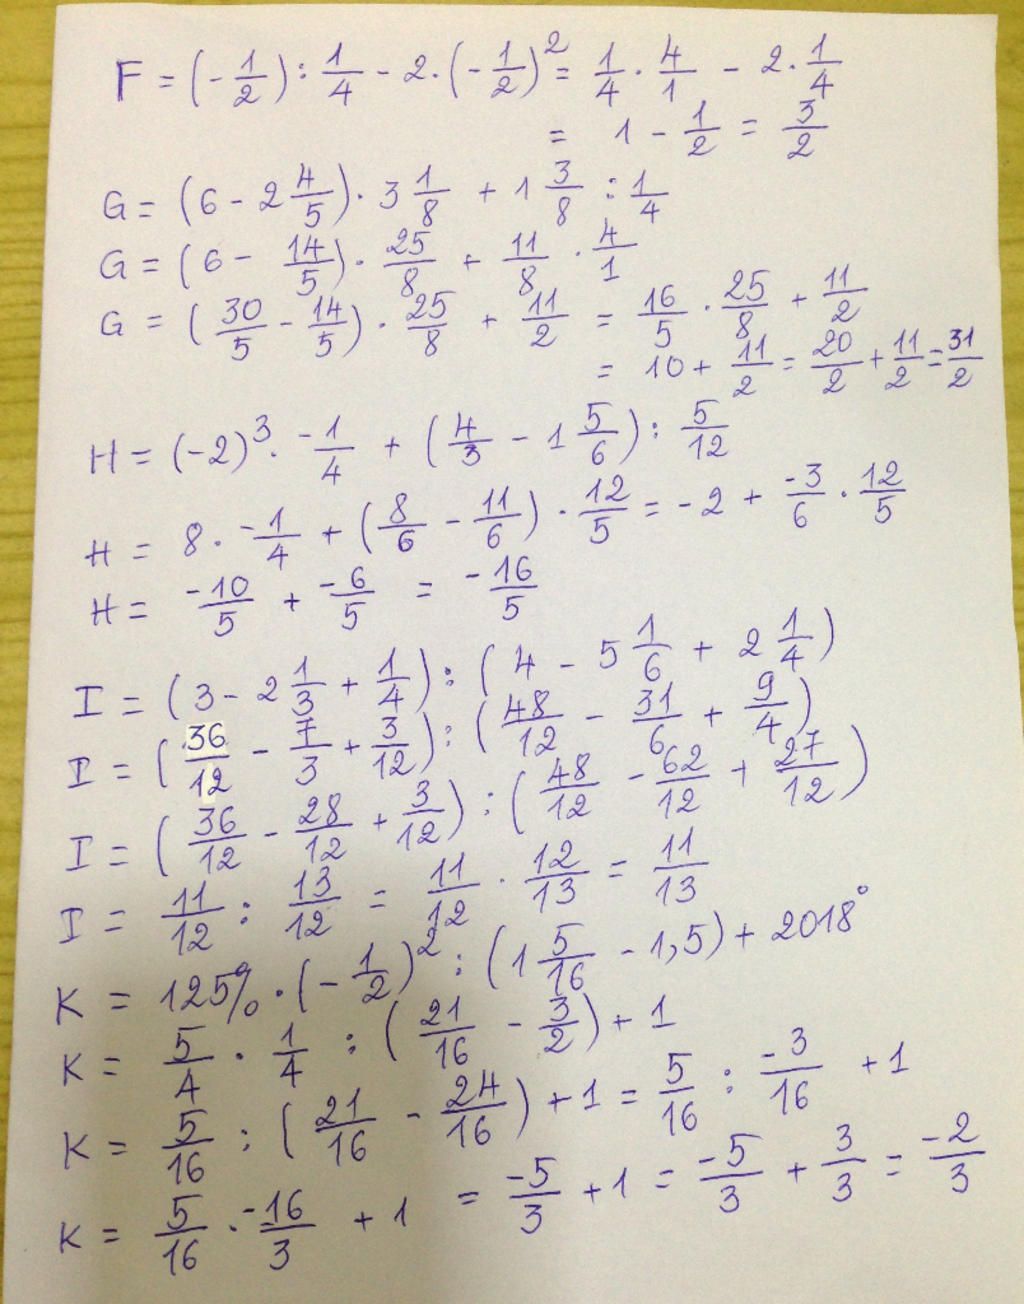 F = (-1/2) : 1/4 - 2·(-1/2)² = 1/4 · 4/1 - 2·1/4
= 1 - 1/2 = 3/2
G = (6 - 2 4/5)· 3 1/8 + 1 3/8 : 1/4
G = (6 - 14/5)· 25/8 + 11/8 · 4/1
G = (30/5 - 14/5) · 25/8 + 11/2 = 16/5 · 25/8 + 11/2
= 10 + 11/2 = 20/2 + 11/2 = 31/2
H = (-2)³· -1/4 + (4/3 - 1 5/6) : 5/12
H = 8 · -1/4 + (8/6 - 11/6) · 12/5 = -2 + -3/6 · 12/5
H = -10/5 + -6/5 = -16/5
I = (3 - 2 1/3 + 1/4) : (4 - 5 1/6 + 2 1/4)
I = (36/12 - 7/3 + 3/12) : (48/12 - 31/6 + 9/4)
I = (36/12 - 28/12 + 3/12) : (48/12 - 62/12 + 27/12)
I = 11/12 : 13/12 = 11/12 · 12/13 = 11/13
K = 125% · (-1/2)² : (1 5/16 - 1,5) + 2018°
K = 5/4 · 1/4 : (21/16 - 3/2) + 1
K = 5/16 : (21/16 - 24/16) + 1 = 5/16 : -3/16 + 1
K = 5/16 · -16/3 + 1 = -5/3 + 1 = -5/3 + 3/3 = -2/3